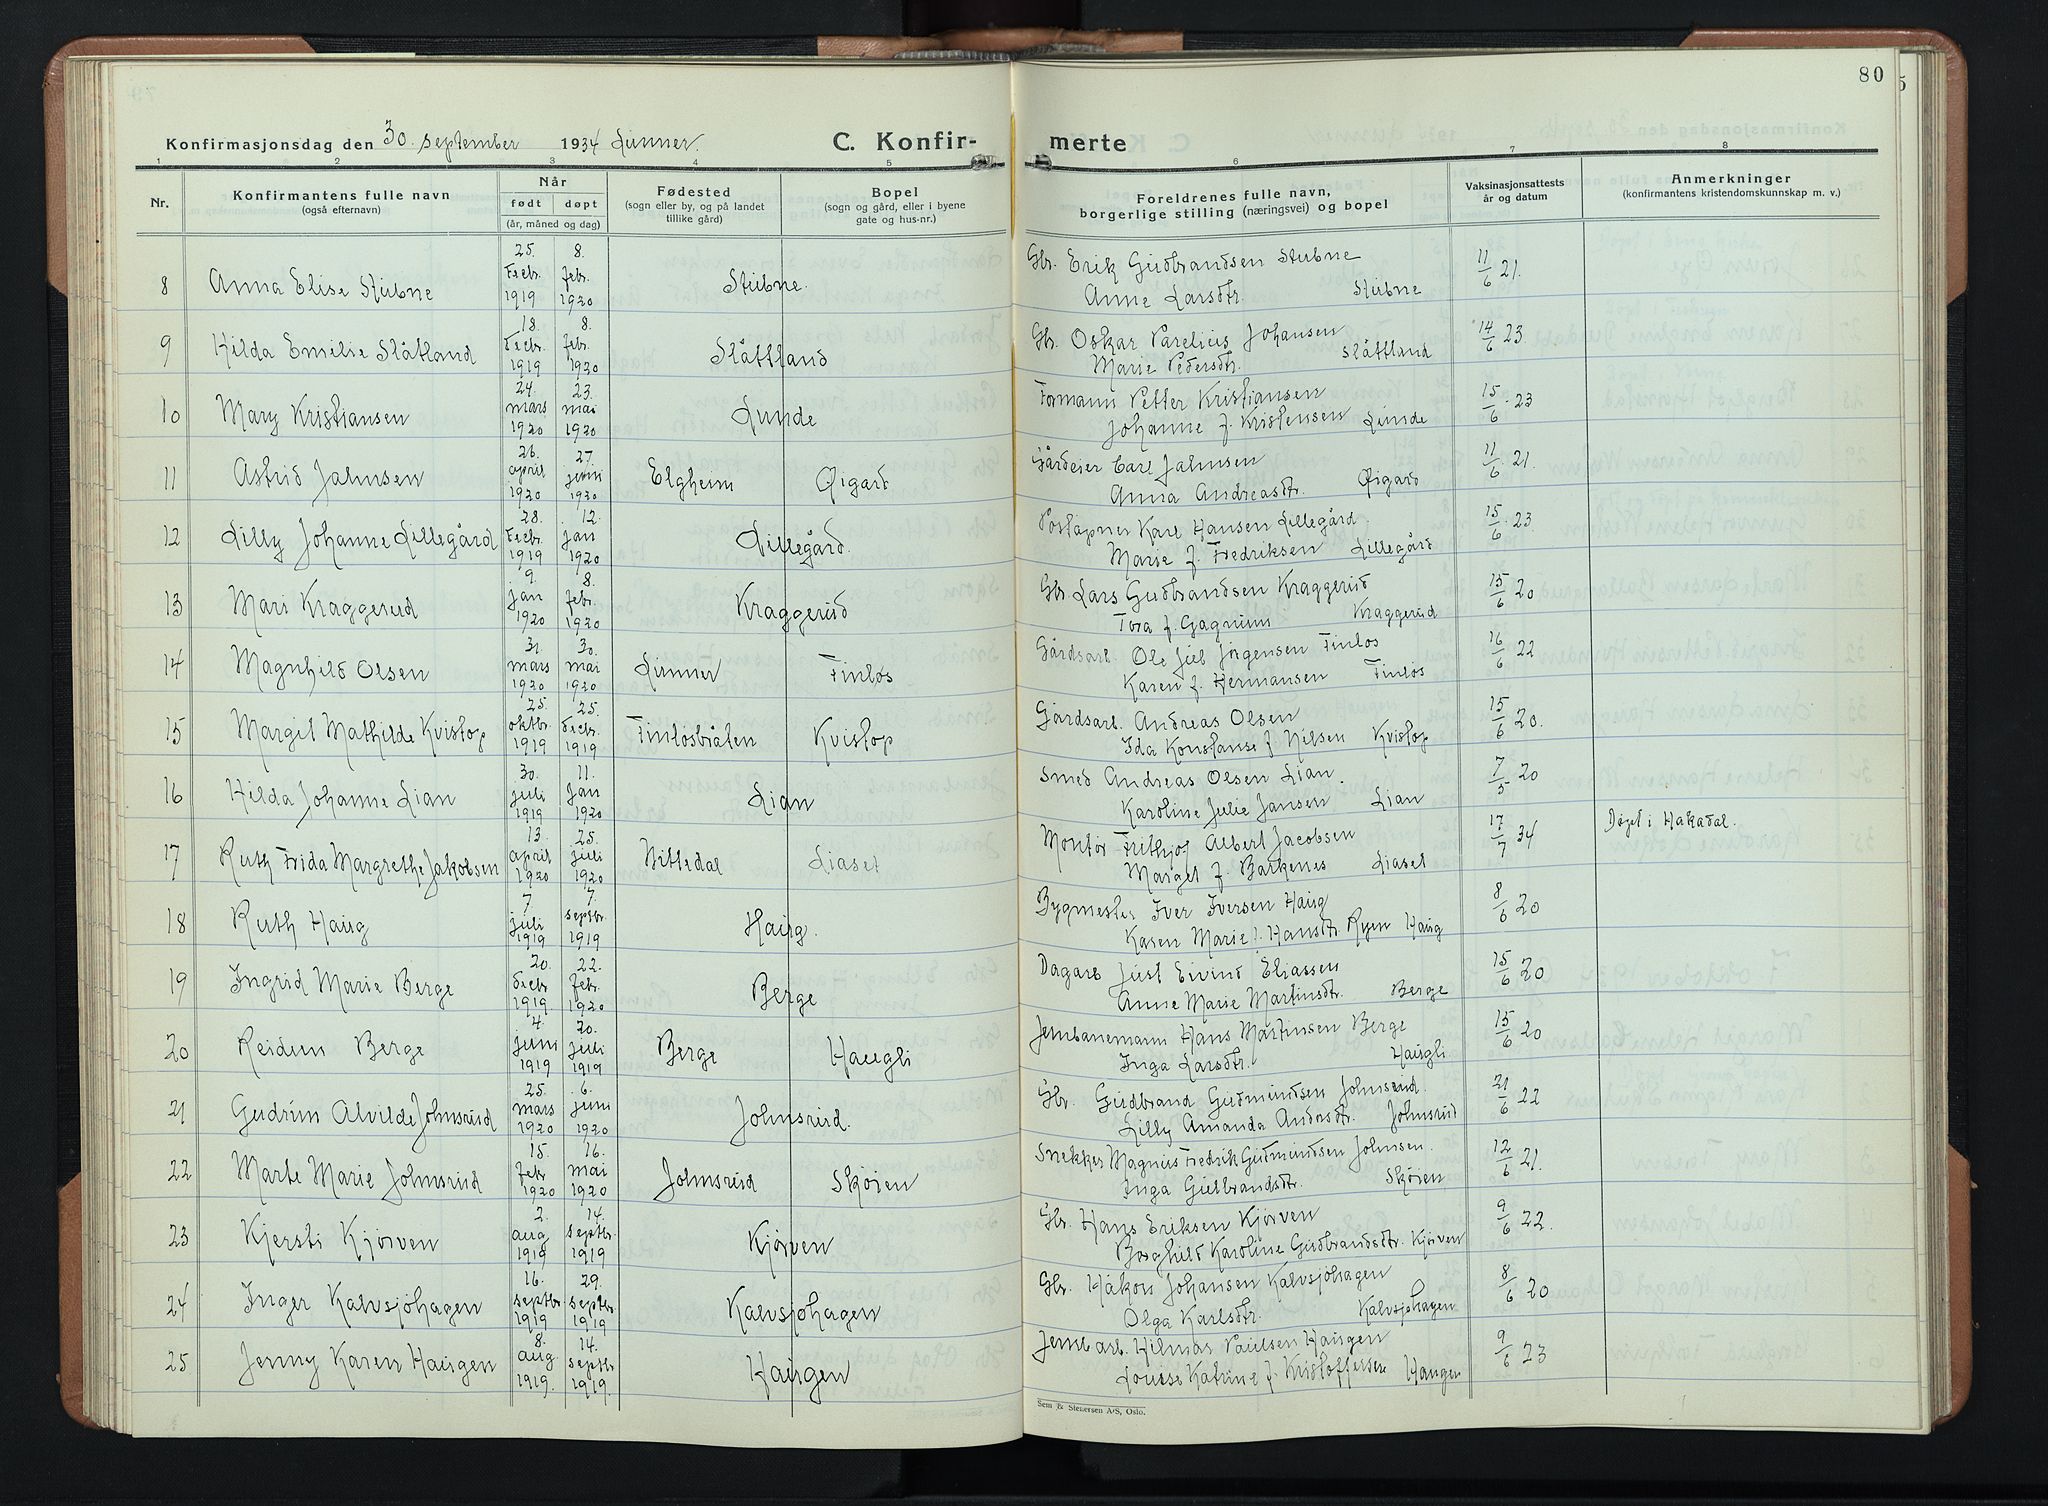 80
Konfirmasjonsdag den 30. september 1934 Lunner. C. Konfirmerte
1 2 3 4 5 6 7 8
Nr. Konfirmantens fulle navn (også efternavn) Når født døpt (år, måned og dag) Fødested (sogn eller by, og på landet tillike gård) Bopel (sogn og gård, eller i byene gate og hus-nr.) Foreldrenes fulle navn, borgerlige stilling (næringsvei) og bopel Vaksinasjonsattests år og datum Anmerkninger (konfirmantens kristendomskunnskap m. v.)
8 Anna Elise Stubne 25. decbr. 1919 8. febr. 1920 Stubne. Gbr. Erik Gudbrandsen Stubne Anne Larsdtr. Stubne 11/6 21.
9 Hilda Emilie Slåtland 18. decbr. 1919 8. febr. 1920 Slåttland Gbr. Oskar Parelius Johansen Marie Pedersdtr. Slåttland 14/6 23.
10 Mary Kristiansen 24. mars 1920 23. mai 1920 Lunde Formann Petter Kristiansen Johanne f. Kristensen Lunde 15/6 23
11 Astrid Jahnsen 26. april 1920 27. juni 1920 Elgheim Øigard Gårdeier Carl Jahnsen Anna Andreasdtr. Øigard 11/6 21.
12 Lilly Johanne Lillegård 28. decbr. 1919 12. jan 1920 Lillegård. Poståpner Karl Hansen Lillegård. Marie f. Fredriksen Lillegård 15/6 23
13 Mari Kraggerud 9. jan 1920 8. febr. 1920 Kraggerud Gbr. Lars Gudbrandsen Kraggerud Tora f. Gagnum Kraggerud 15/6 20
14 Magnhild Olsen 31. mars 1920 30. mai 1920 Lunner Finlos Gårdsarb. Ole Juel Jørgensen Finlos Karen f. Hermansen Finlos 16/6 22
15 Margit Mathilde Kvistop 25. oktbr. 1919 25. decbr. 1919 Finlosbråten Kvistop Gårdsarb. Andreas Olsen Ida Konstanse f. Nilsen Kvistop 15/6 20.
16 Hilda Johanne Lian 30. juli 1919 11. jan 1920 Lian Smed Andreas Olsen Lian. Karoline Julie Jansen Lian 7/5 20
17 Ruth Frida Margrethe Jakobsen 13. april 1920 25. juli 1920 Nittedal Liaset Montør Frithjof Albert Jacobsen Margit f. Barkenes Liaset 17/7 34 Døpt i Hakadal.
18 Ruth Haug 7. juli 1919 7. septbr. 1919 Haug. Bygmester Iver Iversen Haug Karen Marie Hansdtr. Ryen Haug 8/6 20
19 Ingrid Marie Berge 20. decbr. 1919 22. febr. 1920 Berge Dagarb Just Eivind Eliassen Anne Marie Martinsdtr. Berge 15/6 20
20 Reidun Berge 4. juni 1919 20. juli 1919 Berge Haugli Jernbanemann Hans Martinsen Berge Inga Larsdtr. Haugli 15/6 20
21 Gudrun Alvilde Johnsrud 25. mars 1920 6. juni 1920 Johnsrud. Gbr. Gudbrand Gudmundsen Johnsrud. Lilly Amanda Andersdtr. Johnsrud 21/6 22
22 Marte Marie Johnsrud 15. febr 1920 16. mai 1920 Johnsrud Skøien Snekker Magnus Fredrik Gudmundsen Johnsen. Inga Gudbrandsdtr. Skøien 12/6 21.
23 Kjersti Kjørven 2. aug 1919 14. septbr. 1919 Kjørven Gbr. Hans Eriksen Kjørven Borghild Karoline Gudbrandsdtr. Kjørven 9/6 22.
24 Inger Kalvsjøhagen 16. septbr 1919 29. septbr. 1919 Kalvsjøhagen Gbr. Håkon Johansen Kalvsjøhagen Olga Karlsdtr. Kalvsjøhagen 8/6 20
25 Jenny Karen Haugen 8. aug 1919. 14. septbr 1919. Haugen Jernb.arb. Hilmar Paulsen Haugen Louise Katrine f. Kristoffersen Haugen 9/6 23
Sem & Stenersen A/S, Oslo.